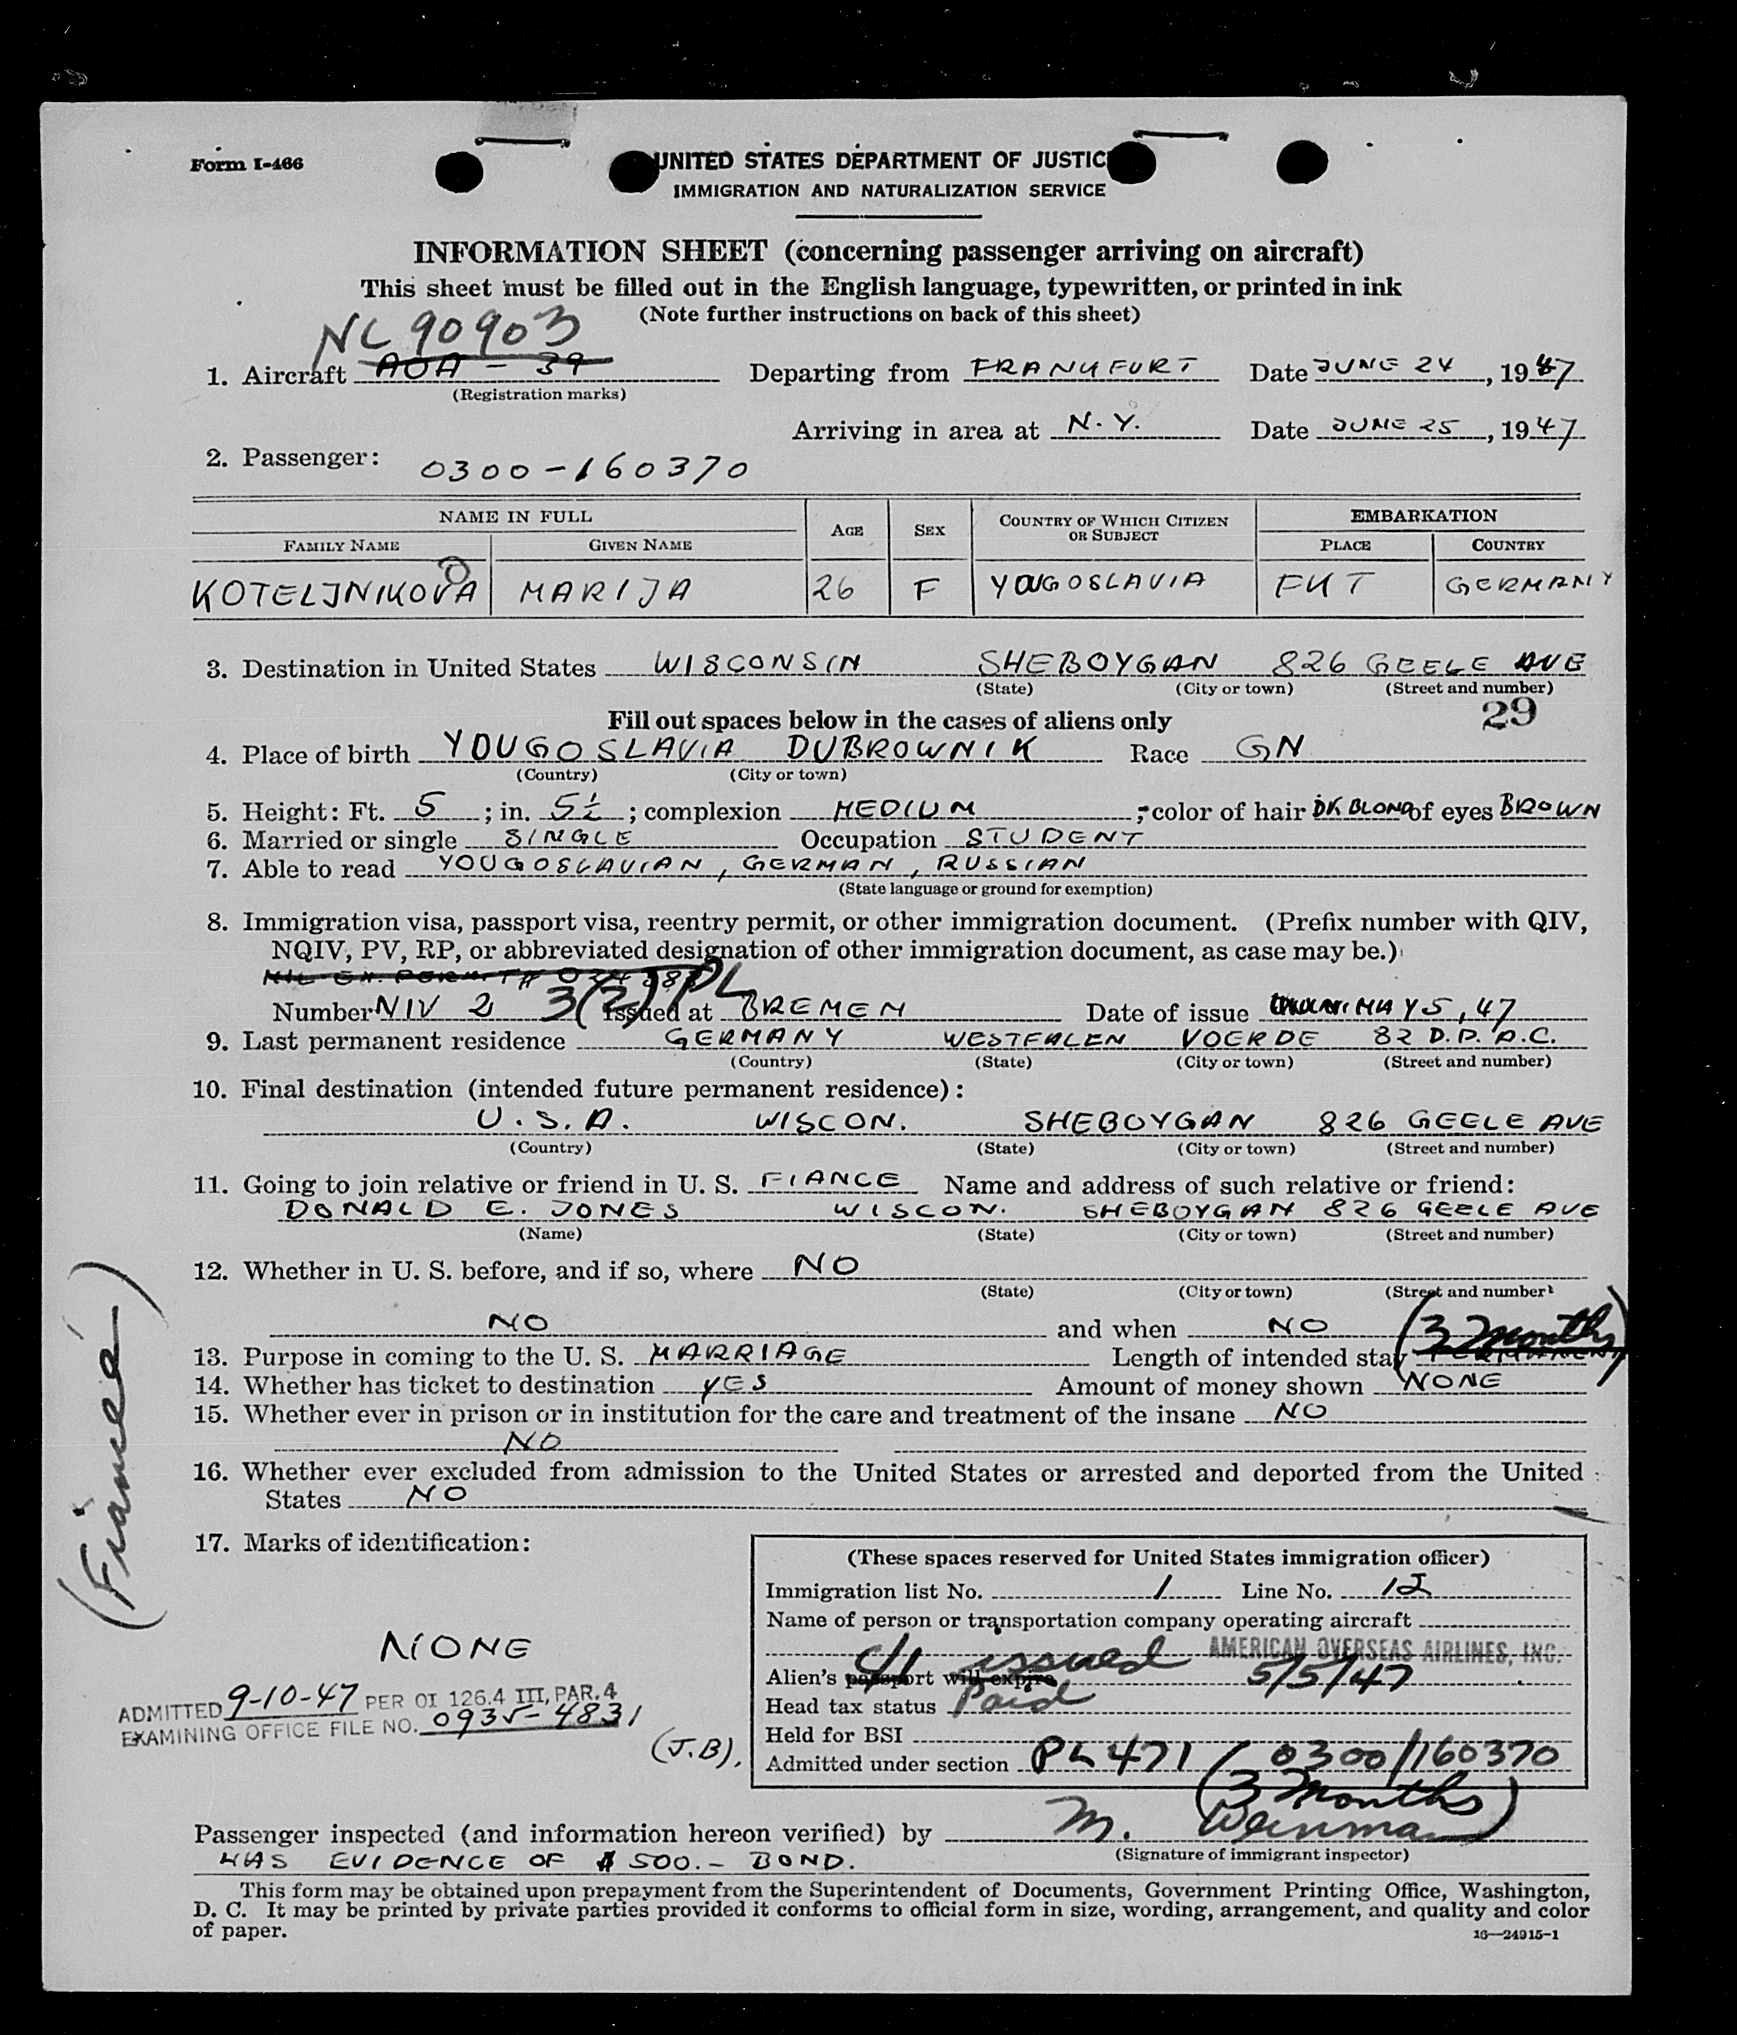 Form I-466
UNITED STATES DEPARTMENT OF JUSTIC
IMMIGRATION AND NATURALIZATION SERVICE
INFORMATION SHEET (concerning passenger arriving on aircraft)
This sheet must be filled out in the English language, typewritten, or printed in ink
(Note further instructions on back of this sheet)
NC 90903
1. Aircraft AOA - 39 Departing from FRANKFURT Date JUNE 24, 1947
(Registration marks)
Arriving in area at N.Y. Date JUNE 25, 1947
2. Passenger: 0300-160370
NAME IN FULL AGE SEX COUNTRY OF WHICH CITIZEN OR SUBJECT EMBARKATION
FAMILY NAME GIVEN NAME PLACE COUNTRY
KOTELJNIKOVA MARIJA 26 F YOUGOSLAVIA FKT GERMANY
3. Destination in United States WISCONSIN SHEBOYGAN 826 GEELE AVE
(State) (City or town) (Street and number)
Fill out spaces below in the cases of aliens only 29
4. Place of birth YOUGOSLAVIA DUBROWNIK Race GN
(Country) (City or town)
5. Height: Ft. 5; in. 5½; complexion MEDIUM; color of hair DK BLOND of eyes BROWN
6. Married or single SINGLE Occupation STUDENT
7. Able to read YOUGOSLAVIAN, GERMAN, RUSSIAN
(State language or ground for exemption)
8. Immigration visa, passport visa, reentry permit, or other immigration document. (Prefix number with QIV,
NQIV, PV, RP, or abbreviated designation of other immigration document, as case may be.)
MIL EX. PERMIT #
Number NIV 2 3(2) PL Issued at BREMEN Date of issue MAY 5, 47
9. Last permanent residence GERMANY WESTFALEN VOERDE 82 D.P. A.C.
(Country) (State) (City or town) (Street and number)
10. Final destination (intended future permanent residence):
U.S.A. WISCON. SHEBOYGAN 826 GEELE AVE
(Country) (State) (City or town) (Street and number)
11. Going to join relative or friend in U. S. FIANCE Name and address of such relative or friend:
DONALD E. JONES WISCON. SHEBOYGAN 826 GEELE AVE
(Name) (State) (City or town) (Street and number)
12. Whether in U. S. before, and if so, where NO
(State) (City or town) (Street and number)
NO and when NO (3 Months)
13. Purpose in coming to the U. S. MARRIAGE Length of intended stay PERMANENT
14. Whether has ticket to destination YES Amount of money shown NONE
15. Whether ever in prison or in institution for the care and treatment of the insane NO
NO
16. Whether ever excluded from admission to the United States or arrested and deported from the United
States NO
(Fianceé)
17. Marks of identification:
NONE
ADMITTED 9-10-47 PER OI 126.4 III, PAR. 4
EXAMINING OFFICE FILE NO. 0935-4831
(J.B).
(These spaces reserved for United States immigration officer)
Immigration list No. 1 Line No. 12
Name of person or transportation company operating aircraft
AMERICAN OVERSEAS AIRLINES, INC.
Alien's passport will expire c/i issued 5/5/47
Head tax status Paid
Held for BSI
Admitted under section PL 471 / 0300/160370
(3 Months)
Passenger inspected (and information hereon verified) by M. Weinman
(Signature of immigrant inspector)
HAS EVIDENCE OF $500.- BOND.
This form may be obtained upon prepayment from the Superintendent of Documents, Government Printing Office, Washington,
D. C. It may be printed by private parties provided it conforms to official form in size, wording, arrangement, and quality and color
of paper.
16—24915-1